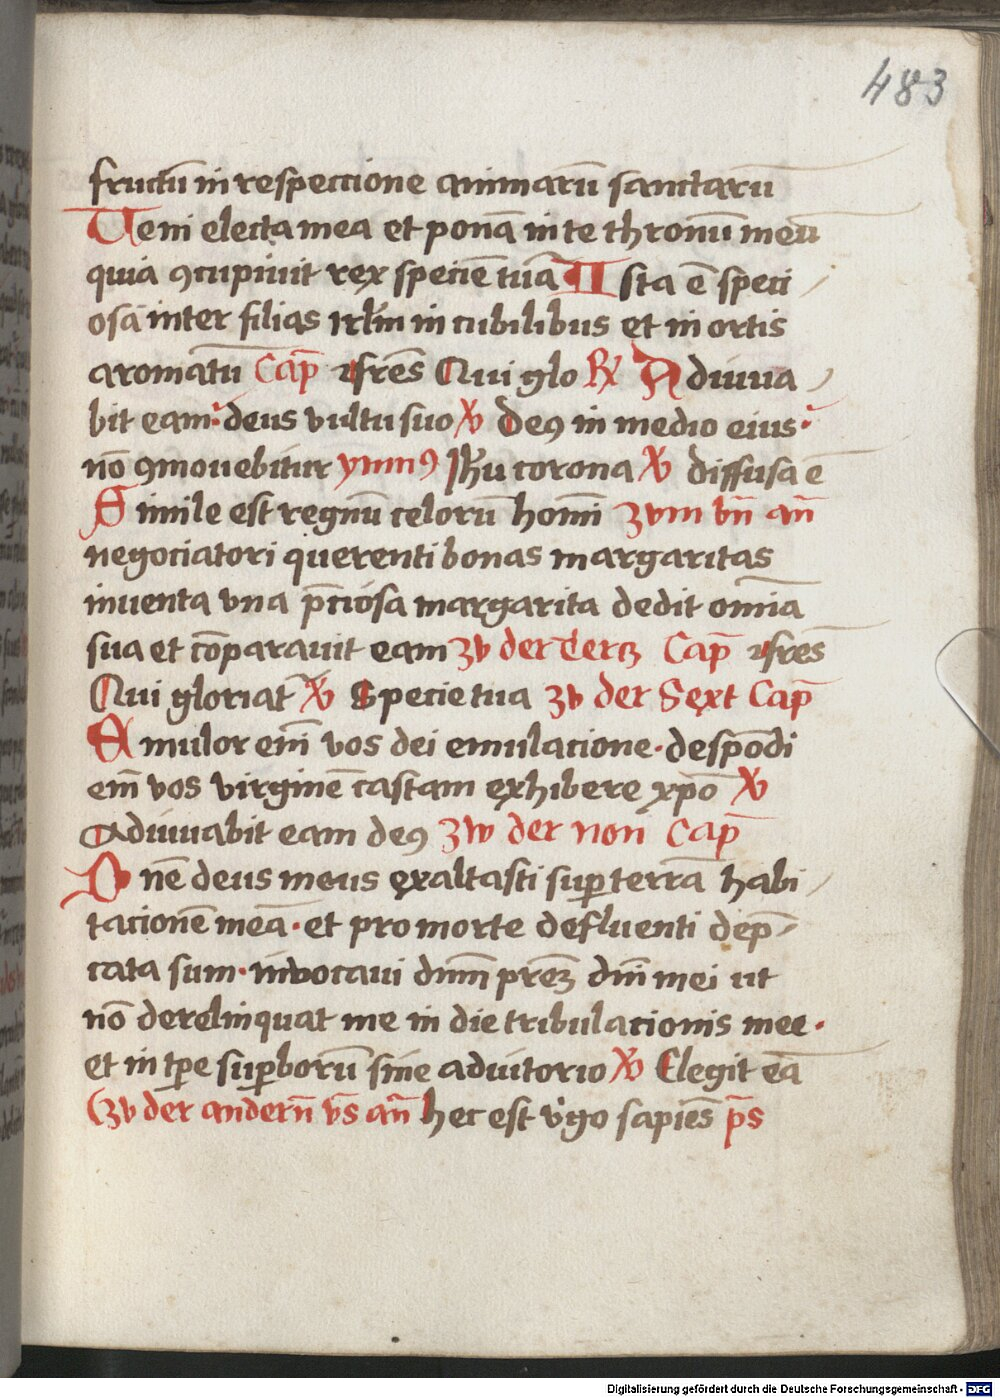 483
fructū in respeccione animarū sanctarū
Veni electa mea et ponā in te thronū meū
quia ꝯcupiuit rex speciē tuā Ista ē speci
osa inter filias irl̄m in cubilibus et in ortis
aromatū Cap̄ fr̄es Qui glo ℟ Adiuua
bit eam deus vultu suo ℣ deꝰ in medio eius
nō ꝯmouebitur ymnꝰ Jh̄u corona ℣ diffusa ē
Simile est regnū celorū homī zvm bn̄ an̄
negociatori querenti bonas margaritas
inuenta vna p̄ciosa margarita dedit om̄ia
sua et cōparauit eam zv der Tercz Cap̄ fr̄es
Qui gloriat̄ ℣ Specie tua zv der Sext Cap̄
Emulor em̄ vos dei emulacione · despōdi
em̄ vos virginē castam exhibere xp̄o ℣
Adiuuabit eam deꝰ zw der non Cap̄
Dn̄e deus meus exaltasti suꝑ terrā habi
tacionē meā · et pro morte defluenti dep̄
cata sum · inuocaui dn̄m pr̄em dn̄i mei ut
nō derelinquat me in die tribulacionis mee ·
et in tꝑe suꝑborū sine adiutorio ℣ Elegit eā
zv der andern̄ v̄s an̄ hec est v̊go sapiēs p̄s
Digitalisierung gefördert durch die Deutsche Forschungsgemeinschaft - DFG